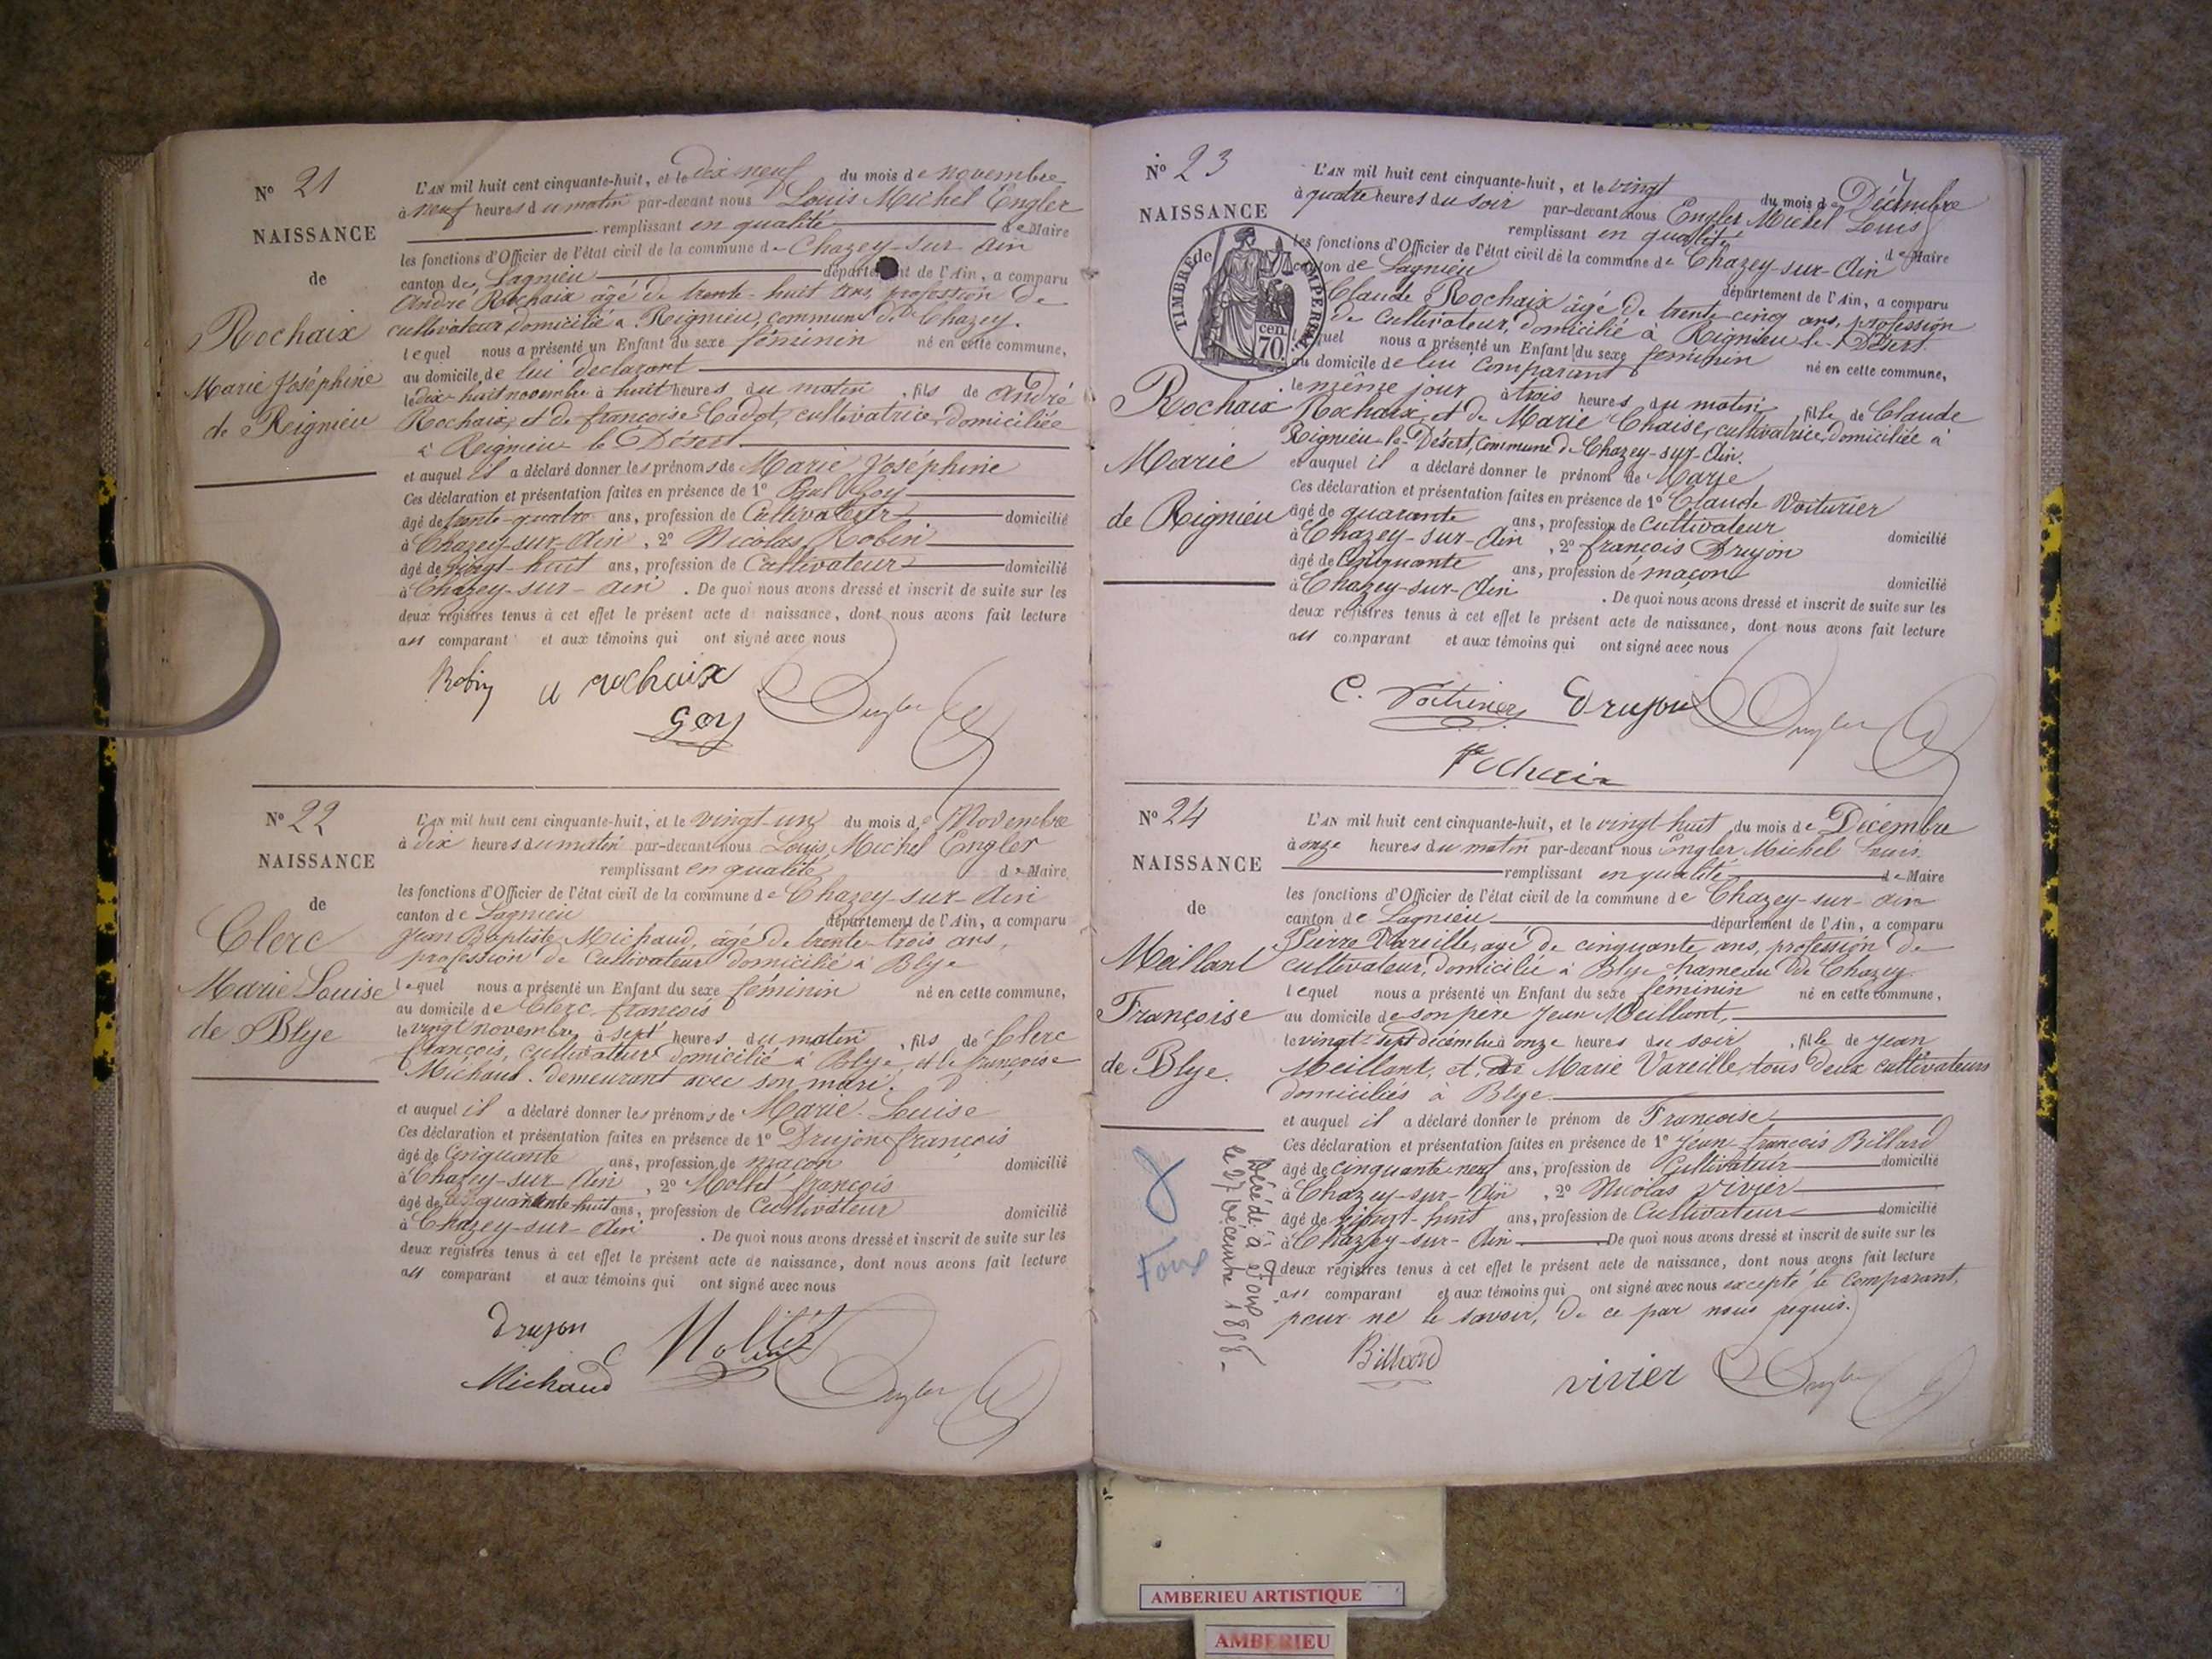 N° 21
NAISSANCE
de
Rochaix
Marie Joséphine
de Reignieu
L'AN mil huit cent cinquante-huit, et le dix neuf du mois de novembre
à neuf heures du matin par-devant nous Louis Michel Engler
remplissant en qualité de Maire
les fonctions d'Officier de l'état civil de la commune de Chazey-sur-Ain
canton de Lagnieu département de l'Ain, a comparu
André Rochaix âgé de trente-huit ans, profession de
cultivateur domicilié à Reignieu, commune de Chazey.
lequel nous a présenté un Enfant du sexe féminin né en cette commune,
au domicile de lui déclarant
le dix-huit novembre à huit heures du matin, fils de André
Rochaix, et de françoise Cadot, cultivatrice, domiciliée
à Reignieu le Désert
et auquel il a déclaré donner les prénoms de Marie Joséphine
Ces déclaration et présentation faites en présence de 1°
âgé de trente-quatre ans, profession de Cultivateur domicilié
à Chazey-sur-Ain, 2° Nicolas Robin
âgé de vingt-huit ans, profession de Cultivateur domicilié
à Chazey-sur-ain. De quoi nous avons dressé et inscrit de suite sur les
deux registres tenus à cet effet le présent acte de naissance, dont nous avons fait lecture
au comparant et aux témoins qui ont signé avec nous
Robin a rochaix Engler
Goy
N° 22
NAISSANCE
de
Clerc
Marie Louise
de Blye
L'AN mil huit cent cinquante-huit, et le vingt-un du mois de Novembre
à dix heures du matin par-devant nous Louis Michel Engler
remplissant en qualité de Maire
les fonctions d'Officier de l'état civil de la commune de Chazey-sur-Ain
canton de Lagnieu département de l'Ain, a comparu
Jean Baptiste Michaud, âgé de trente-trois ans,
profession de Cultivateur domicilié à Blye
lequel nous a présenté un Enfant du sexe féminin né en cette commune,
au domicile de Clerc françois
le vingt novembre à sept heures du matin, fils de Clerc
françois, cultivateur domicilié à Blye, et de françoise
Michaud. demeurant avec son mari.
et auquel il a déclaré donner les prénoms de Marie-Louise
Ces déclaration et présentation faites en présence de 1° Drujon françois
âgé de Cinquante ans, profession de maçon domicilié
à Chazey-sur-Ain, 2° Moltet françois
âgé de quarante huit ans, profession de Cultivateur domicilié
à Chazey-sur-Ain. De quoi nous avons dressé et inscrit de suite sur les
deux registres tenus à cet effet le présent acte de naissance, dont nous avons fait lecture
au comparant et aux témoins qui ont signé avec nous
Drujon
Michaud Engler
N° 23
NAISSANCE
TIMBRE IMPERIAL
cen.
70.
Rochaix
Marie
de Reignieu
L'AN mil huit cent cinquante-huit, et le vingt du mois de Décembre
à quatre heures du soir par-devant nous Engler Michel Louis
remplissant en qualité de Maire
les fonctions d'Officier de l'état civil de la commune de Chazey-sur-Ain
canton de Lagnieu département de l'Ain, a comparu
Claude Rochaix âgé de trente-cinq ans, profession
de Cultivateur, domicilié à Reignieu le-Désert
lequel nous a présenté un Enfant du sexe féminin né en cette commune,
au domicile de lui comparant
le même jour à trois heures du matin, fille de Claude
Rochaix, et de Marie Chaise, cultivatrice, domiciliée à
Reignieu-le-Désert, commune de Chazey-sur-Ain.
et auquel il a déclaré donner le prénom de Marie
Ces déclaration et présentation faites en présence de 1° Claude Voiturier
âgé de quarante ans, profession de cultivateur domicilié
à Chazey-sur-Ain, 2° françois Drujon
âgé de cinquante ans, profession de maçon domicilié
à Chazey-sur-Ain. De quoi nous avons dressé et inscrit de suite sur les
deux registres tenus à cet effet le présent acte de naissance, dont nous avons fait lecture
au comparant et aux témoins qui ont signé avec nous
C. Voiturier Drujon Engler
N° 24
NAISSANCE
de
Meillant
Françoise
de Blye.
L'AN mil huit cent cinquante-huit, et le vingt-huit du mois de Décembre
à onze heures du matin par-devant nous Engler Michel Louis.
remplissant en qualité de Maire
les fonctions d'Officier de l'état civil de la commune de Chazey-sur-ain
canton de Lagnieu département de l'Ain, a comparu
Pierre Vareille, agé de cinquante ans, profession de
cultivateur, domicilié à Blye hameau de Chazey.
lequel nous a présenté un Enfant du sexe féminin né en cette commune,
au domicile de son père Jean Meillant,
le vingt-sept décembre à onze heures du soir, fille de Jean
Meillant, et de Marie Vareille, tous deux cultivateurs
domiciliés à Blye.
et auquel il a déclaré donner le prénom de Françoise
Ces déclaration et présentation faites en présence de 1° Jean-françois Billard
âgé de cinquante-neuf ans, profession de Cultivateur domicilié
à Chazey-sur-Ain, 2° Nicolas Vivier
âgé de vingt-huit ans, profession de Cultivateur domicilié
à Chazey-sur-Ain. De quoi nous avons dressé et inscrit de suite sur les
deux registres tenus à cet effet le présent acte de naissance, dont nous avons fait lecture
au comparant et aux témoins qui ont signé avec nous excepté le comparant,
pour ne le savoir, de ce par nous requis.
Billard vivier Engler
Décédé à
décembre 1858
AMBERIEU ARTISTIQUE
AMBERIEU